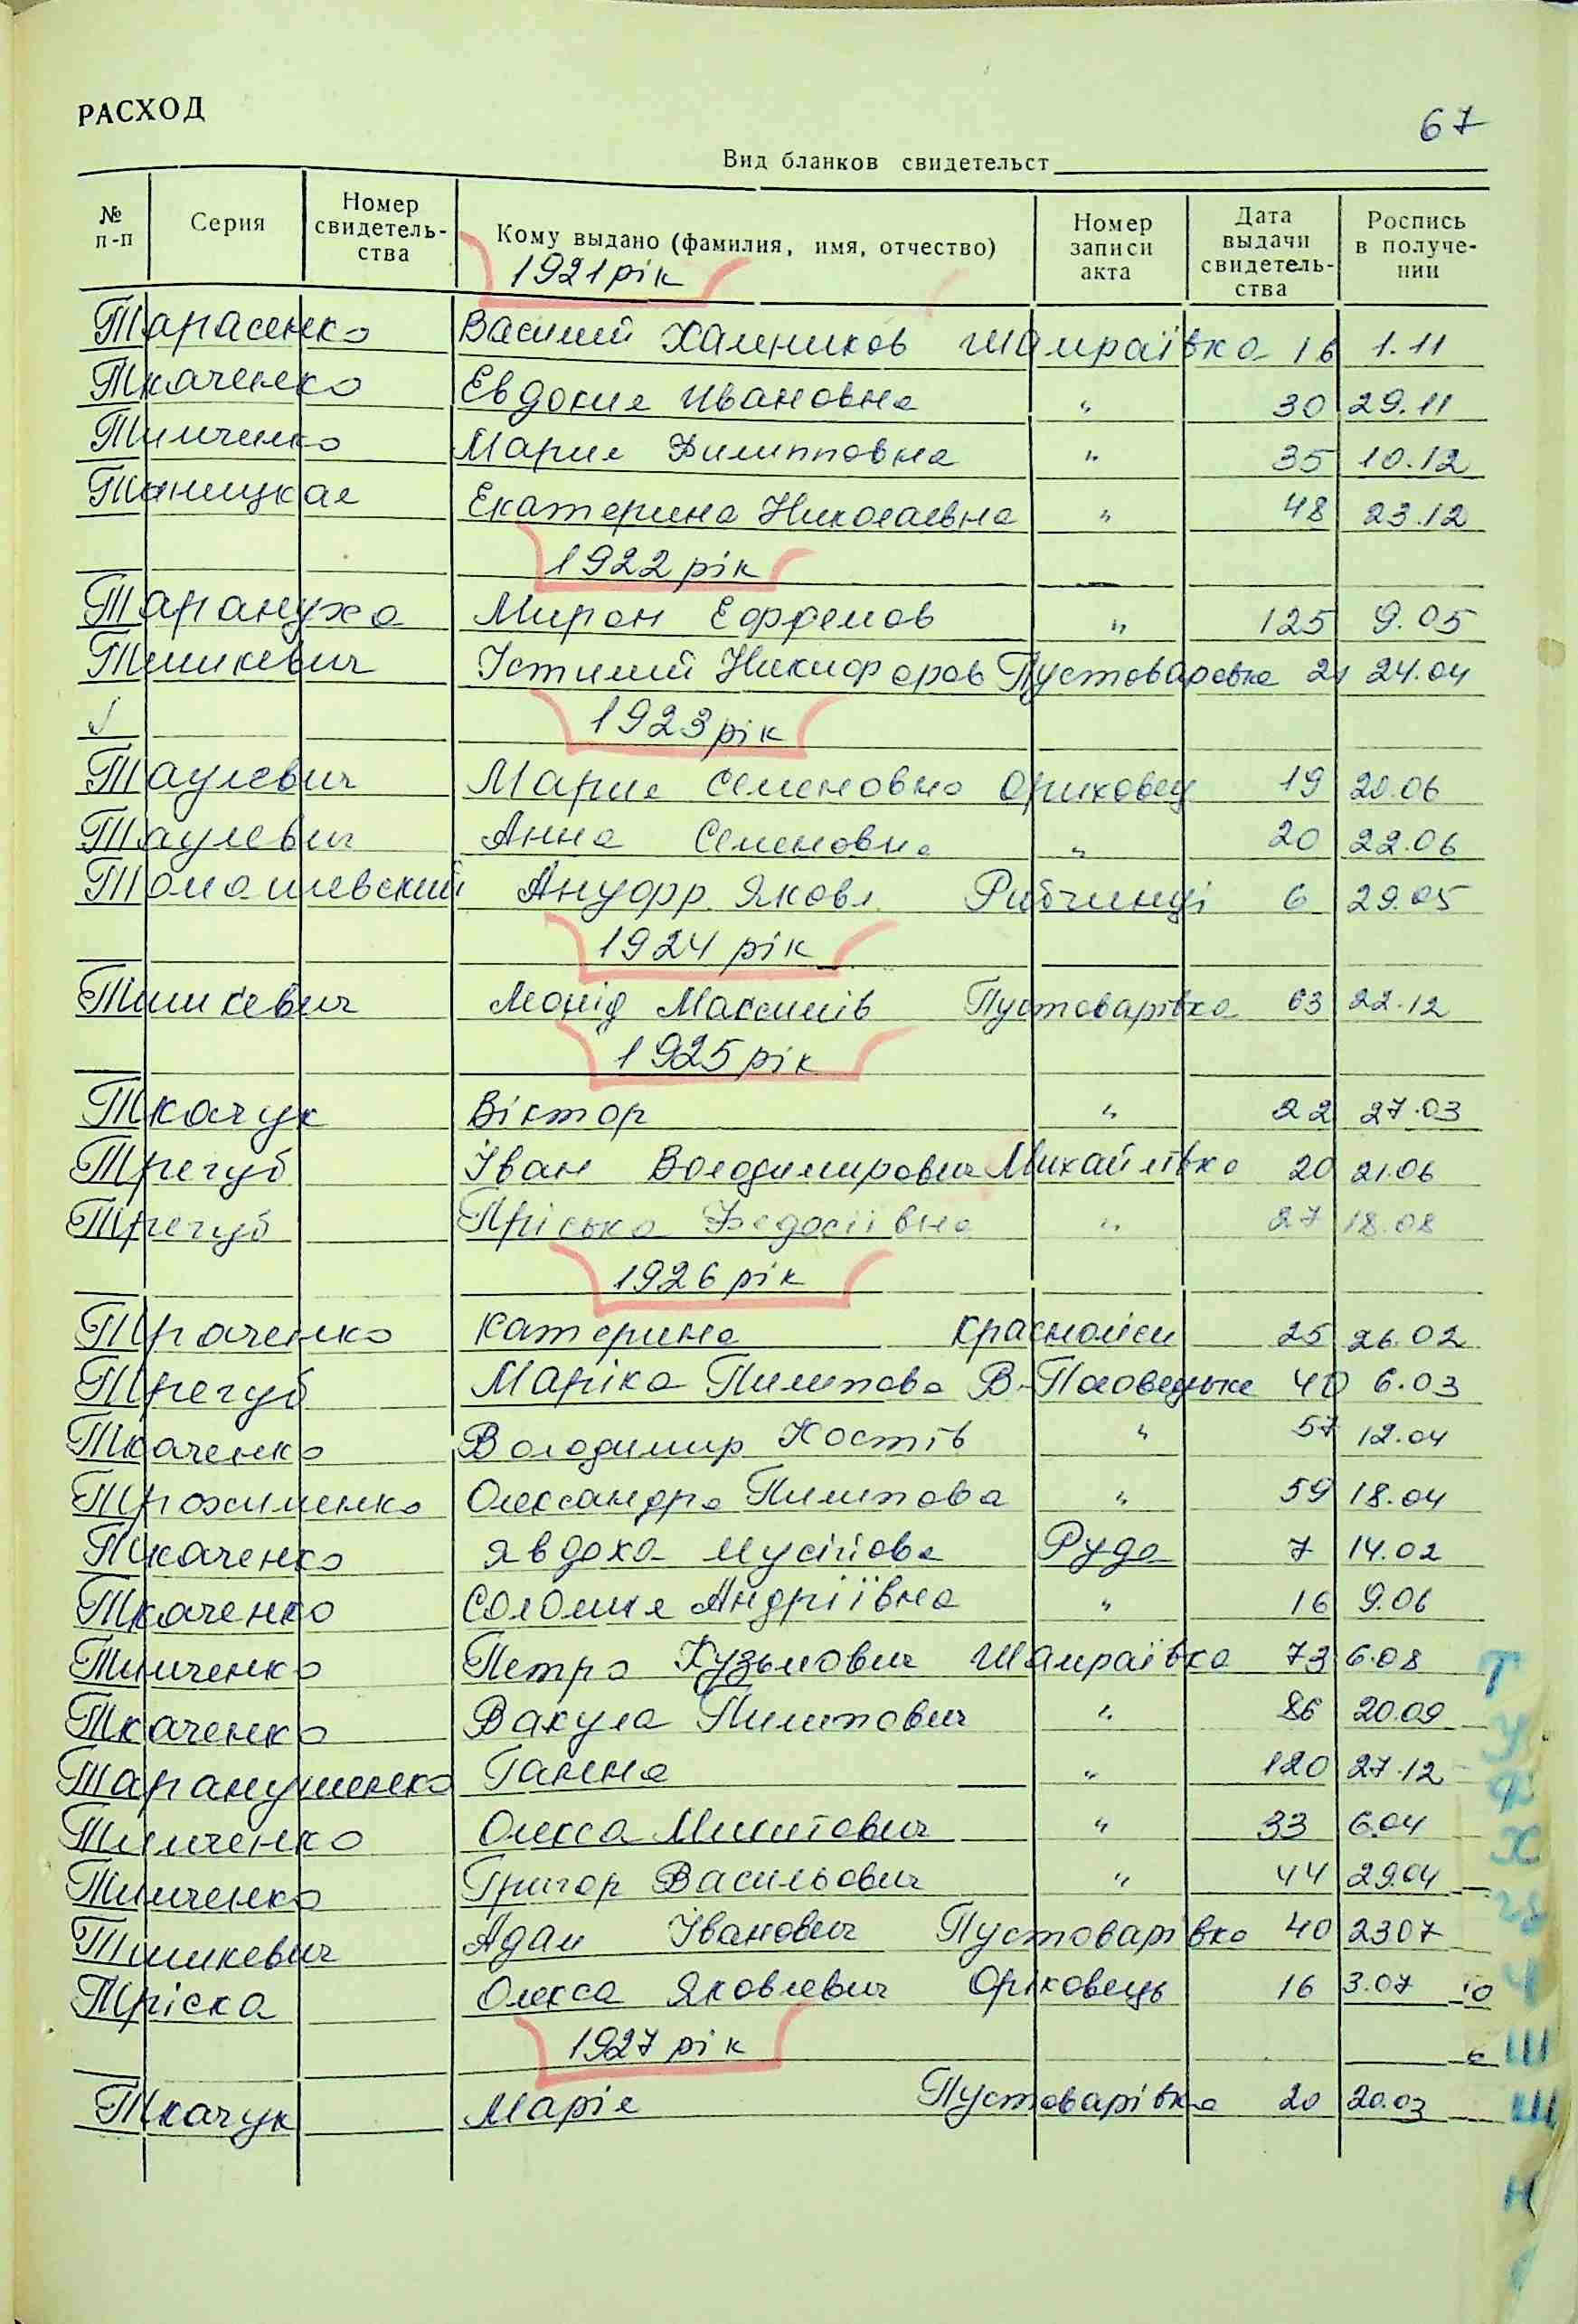 РАСХОД
67
Вид бланков свидетельст
№ п-п Серия Номер свидетель-ства Кому выдано (фамилия, имя, отчество) Номер записи акта Дата выдачи свидетель-ства Роспись в получе-нии
1921 рік
Тарасенко Василий Шамраївка 16 1.11
Ткаченко Евдокия Ивановна " 30 29.11
Тимченко Мария Филипповна " 35 10.12
Таницкая Екатерина Николаевна " 48 23.12
1922 рік
Тарануха Мирон Еффемов " 125 9.05
Тишкевич Устимий Никифоров Пустоваровка 24.04
√ 1923 рік
Таулевич Мария Семеновно Ориховец 19 20.06
Таулевич Анна Семеновна " 20 22.06
Томашевский Ануфр. Яковл. Рибчинці 6 29.05
1924 рік
Тишкевич Леонід Максимів Пустоварівка 63 22.12
1925 рік
Ткачук Віктор " 22 27.03
Трегуб Іван Володимирович Михайлівка 20 21.06
Трегуб Пріська Федосіївна " 27 18.08
1926 рік
Траченко Катерина Краснолiси 25 26.02
Трегуб Маріка Пилипова В-Половецьке 40 6.03
Ткаченко Володимир Костів " 57 12.04
Трохименко Олександра Пилипова " 59 18.04
Ткаченко Явдоха Мусійова Руда 7 14.02
Ткаченко Соломия Андріївна " 16 9.06
Тимченко Петро Кузьмович Шамраївка 73 6.08
Ткаченко Вакула Пилипович " 86 20.09
Таранушенко Ганна " 120 27.12
Тимченко Олекса Микитович " 33 6.04
Тимченко Григор Васильович " 44 29.04
Тишкевич Адам Іванович Пустоварівка 40 23.07
Тріска Олекса Яковлевич Оріховець 16 3.07
1927 рік
Ткачук Марія Пустоварівка 20 20.03
Т
У
Ф
Х
Ч
Ш
Щ